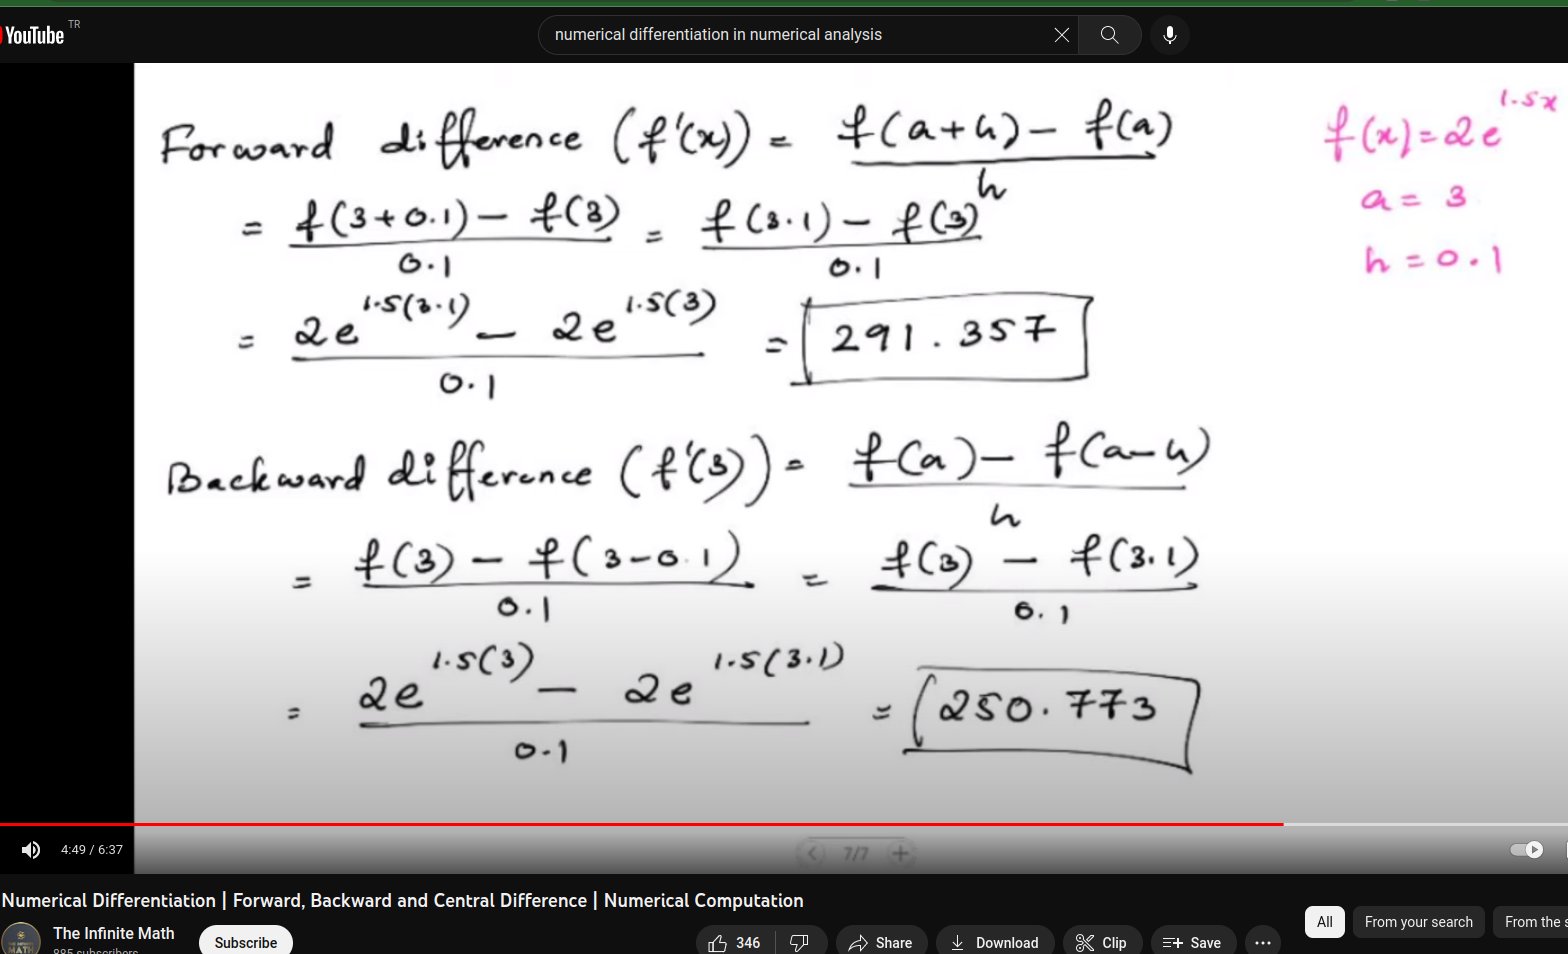 YouTube TR
numerical differentiation in numerical analysis
Forward difference (f'(x)) = f(a+h) - f(a) / h
f(x) = 2e^1.5x
a = 3
h = 0.1
= f(3+0.1) - f(3) / 0.1 = f(3.1) - f(3) / 0.1
= 2e^1.5(3.1) - 2e^1.5(3) / 0.1 = 291.357
Backward difference (f'(3)) = f(a) - f(a-h) / h
= f(3) - f(3-0.1) / 0.1 = f(3) - f(3.1) / 0.1
= 2e^1.5(3) - 2e^1.5(3.1) / 0.1 = 250.773
4:49 / 6:37
7/7
Numerical Differentiation | Forward, Backward and Central Difference | Numerical Computation
The Infinite Math
885 subscribers
Subscribe
346
Share
Download
Clip
Save
All
From your search
From the